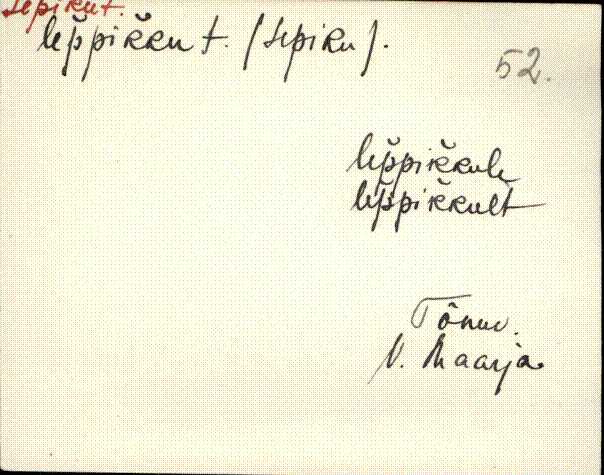 Lepiku t.
lep̆pik̆ku t. (Lepiku).
52.
lep̆pik̆kule
lep̆pik̆kult
V. Maarja